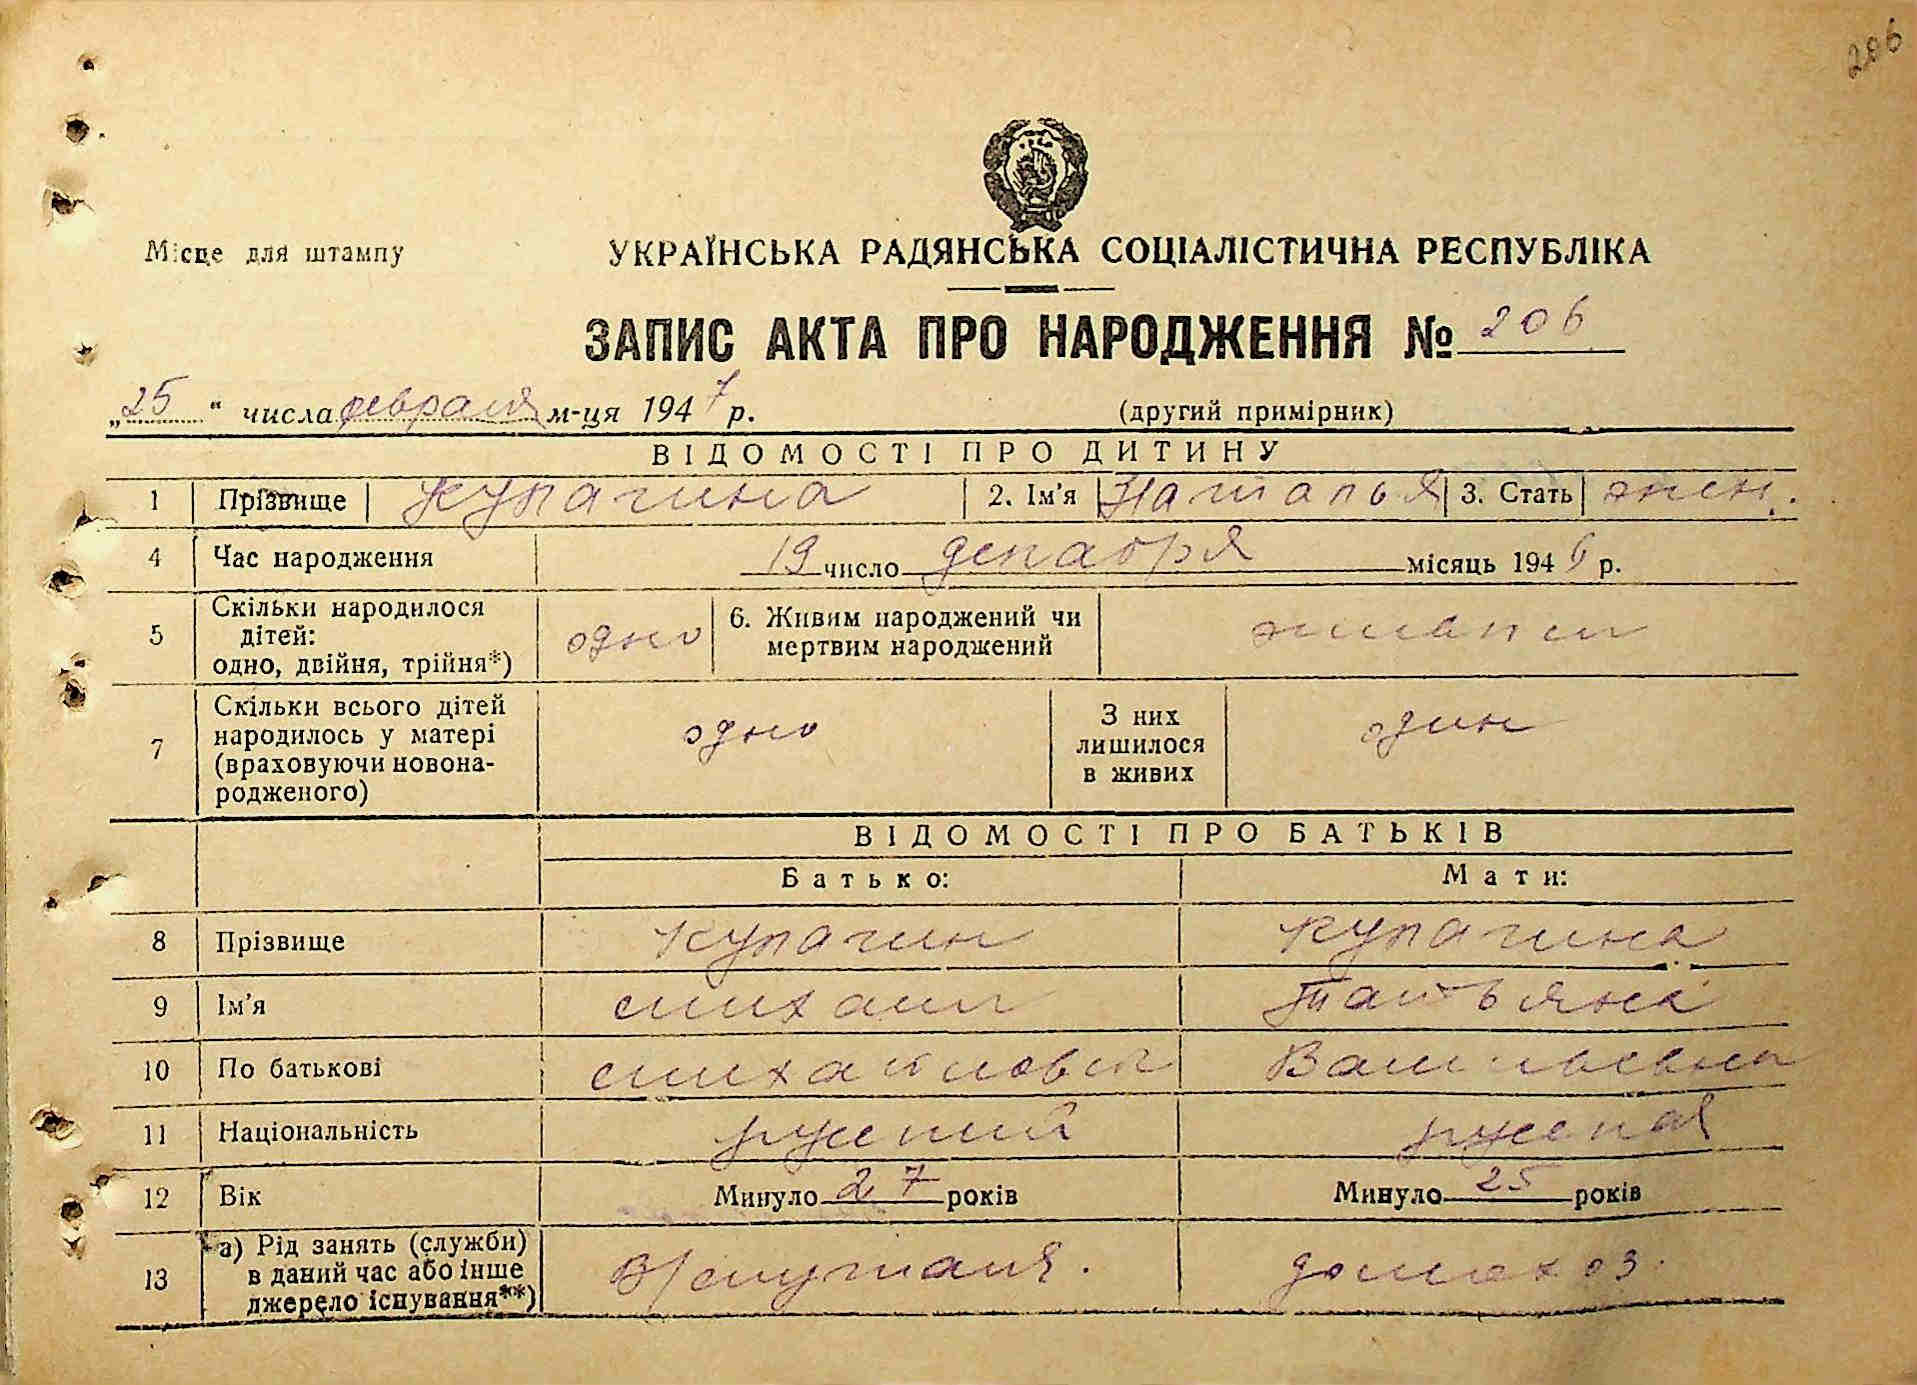 206
Місце для штампу
УКРАЇНСЬКА РАДЯНСЬКА СОЦІАЛІСТИЧНА РЕСПУБЛІКА
ЗАПИС АКТА ПРО НАРОДЖЕННЯ № 206
„25“ числа февраля м-ця 1947 р. (другий примірник)
ВІДОМОСТІ ПРО ДИТИНУ
1 Прізвище Купагина 2. Ім'я Наталья 3. Стать жен.
4 Час народження 19 число декабря місяць 1946 р.
5 Скільки народилося дітей: одно, двійня, трійня*) одно 6. Живим народжений чи мертвим народжений
7 Скільки всього дітей народилось у матері (враховуючи новонародженого) одно З них лишилося в живих один
ВІДОМОСТІ ПРО БАТЬКІВ
Батько: Мати:
8 Прізвище Купагин Купагина
9 Ім'я Михаил Татьяна
10 По батькові Михайлович Васильевна
11 Національність русский русская
12 Вік Минуло 27 років Минуло 25 років
13 а) Рід занять (служби) в даний час або інше джерело існування**) домохоз.